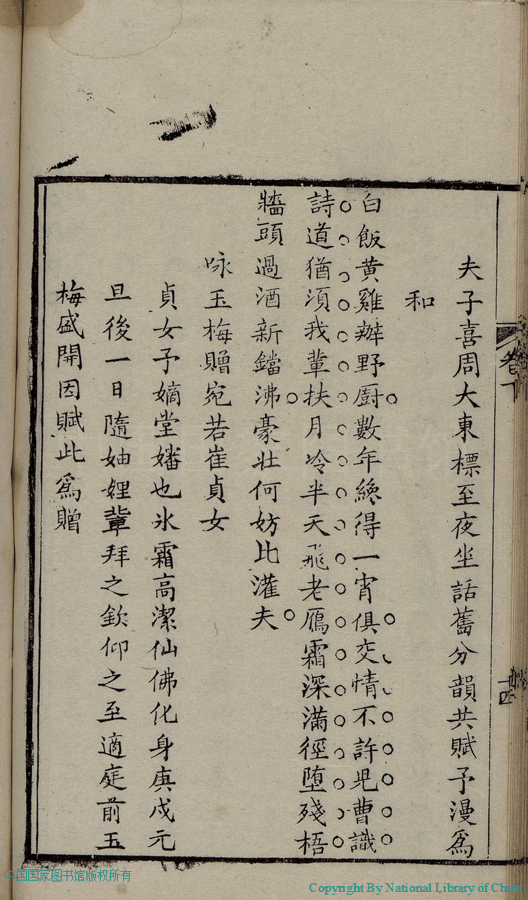 夫子喜周大東標至夜坐話舊分韻共賦予漫為
和
白飯黃雞辦野厨數年纔得一宵俱交情不許兒曹識
詩道猶須我輩扶月冷半天飛老鴈霜深滿徑墮殘梧
牆頭過酒新鐺沸豪壯何妨比灌夫
咏玉梅贈宛若崔貞女
貞女予嫡堂嬸也氷霜高潔仙佛化身庚戌元
旦後一日隨妯娌輩拜之欽仰之至適庭前玉
梅盛開因賦此為贈
卷下
十四
中国国家图书馆版权所有
Copyright By National Library of China